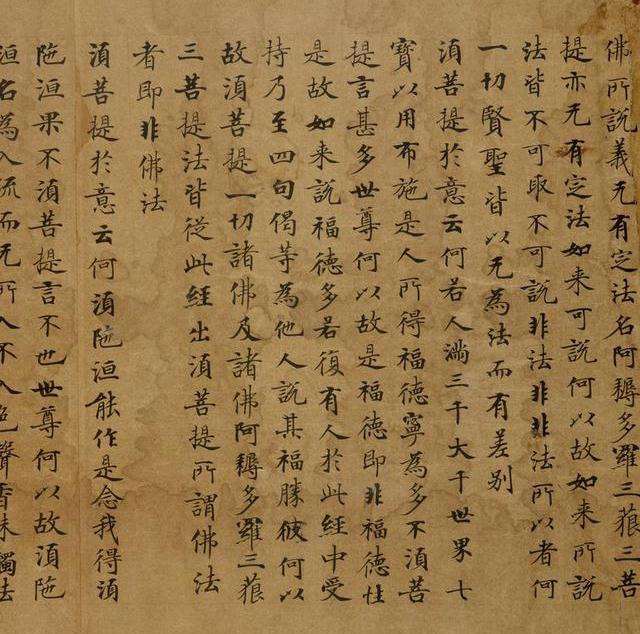 佛所說義无有定法名阿耨多羅三藐三菩
提亦无有定法如来可說何以故如来所說
法皆不可取不可說非法非非法所以者何
一切賢聖皆以无為法而有差別
湏菩提於意云何若人滿三千大千世界七
寶以用布施是人所得福德寧為多不湏菩
提言甚多世尊何以故是福德即非福德性
是故如来說福德多若復有人於此經中受
持乃至四句偈等為他人說其福勝彼何以
故湏菩提一切諸佛及諸佛阿耨多羅三藐
三菩提法皆從此經出湏菩提所謂佛法
者即非佛法
湏菩提於意云何湏陁洹能作是念我得湏
陁洹果不湏菩提言不也世尊何以故湏陁
洹名為入流而无所入不入色聲香味觸法